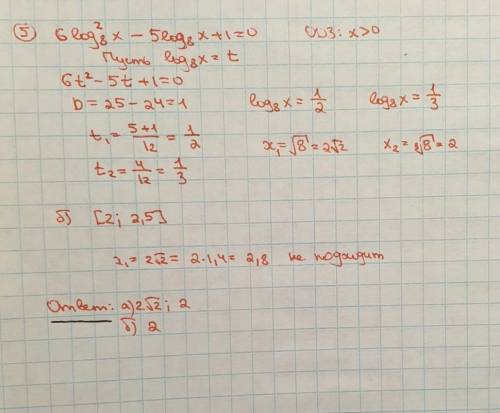 ⑤ 6log₈²x − 5log₈x + 1 = 0 ОДЗ: x>0
Пусть log₈x = t
6t² − 5t + 1 = 0
D = 25 − 24 = 1
log₈x = 1/2 log₈x = 1/3
t₁ = (5+1)/12 = 1/2
x₁ = √8 = 2√2 x₂ = ³√8 = 2
t₂ = 4/12 = 1/3
б) [2; 2,5]
x₁ = 2√2 = 2·1,4 = 2,8 не подходит
Ответ: а) 2√2; 2
б) 2